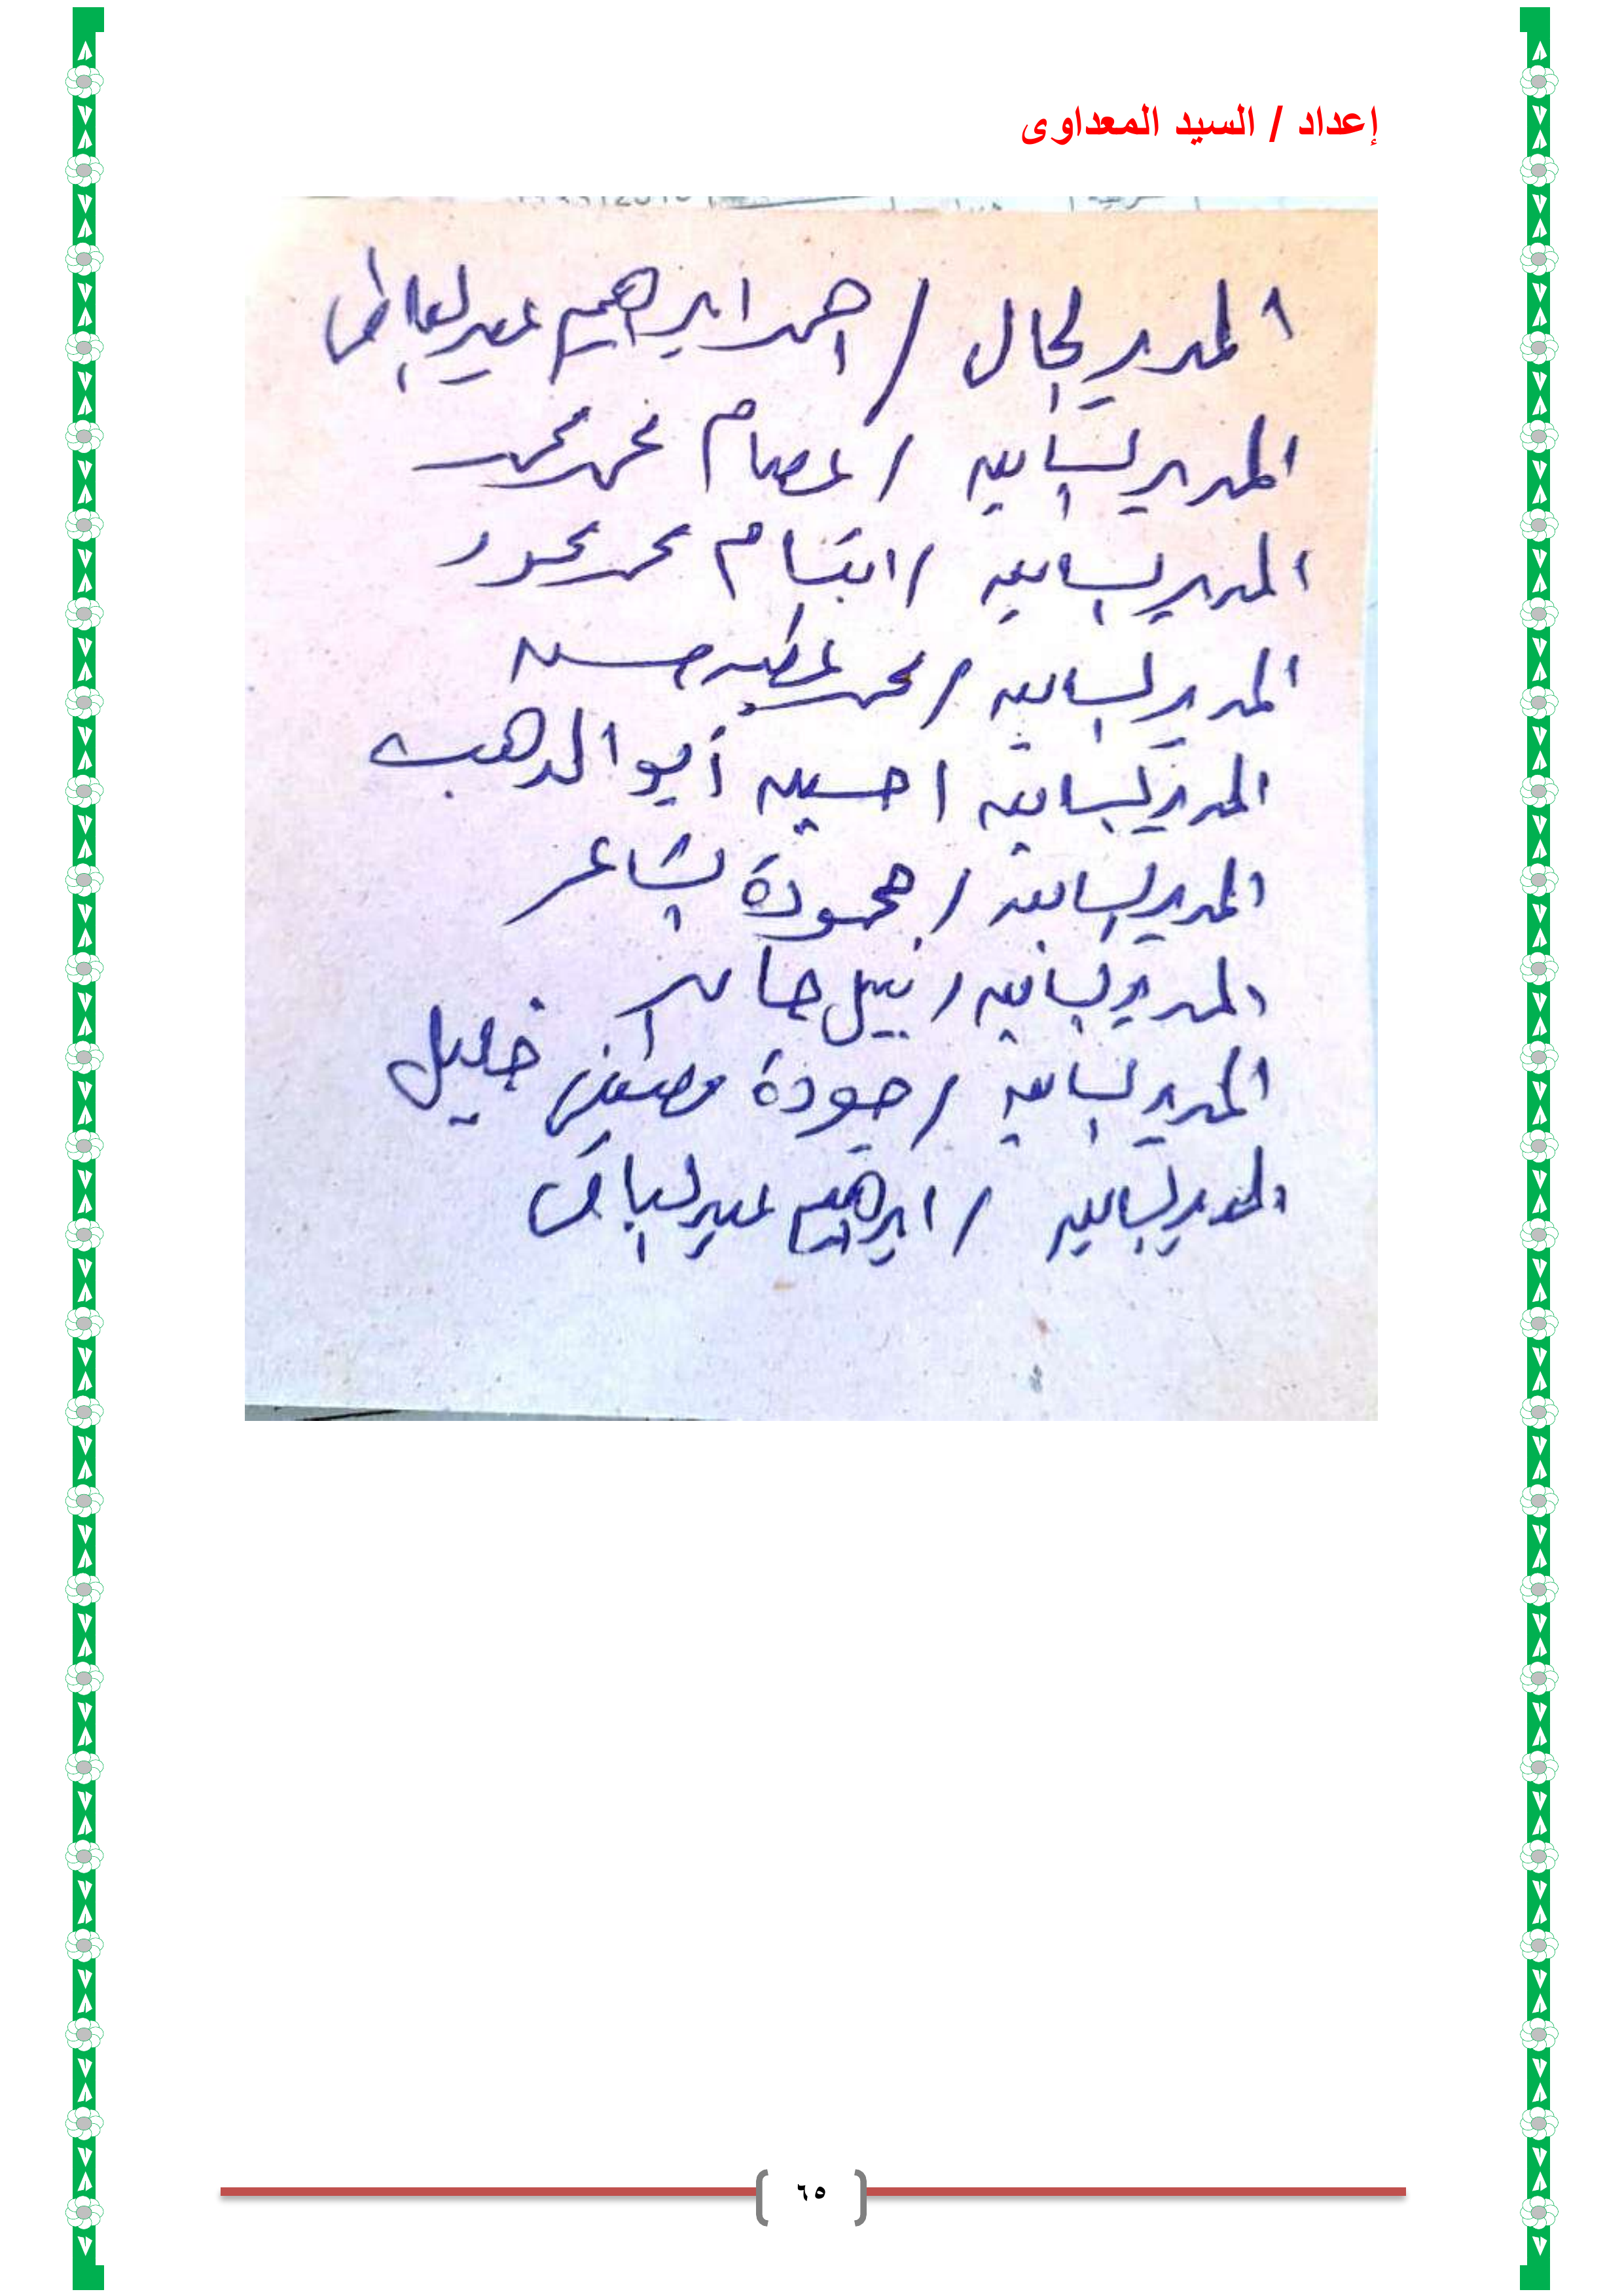 إعداد / السيد المعداوى
المدير الحالى / احمد ابراهيم عبد العاطى
المدير السابق / عصام محمد محمد
المدير السابق / ابتسام محمد محمد
المدير السابق / محمد عطيه حسن
المدير السابق / حسين أبو الدهب
المدير السابق / حمودة الشاعر
المدير السابق / نبيل حامد
المدير السابق / جودة مصطفى خليل
المدير السابق / ابراهيم عبد الباقى
٦٥